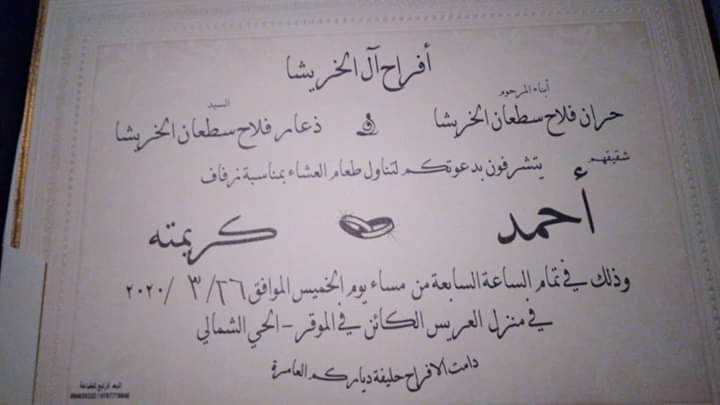 أفراح آل الخريشا
أبناء المرحوم
حران فلاح سطعان الخريشا
و
السيد
ذعار فلاح سطعان الخريشا
يتشرفون بدعوتكم لتناول طعام العشاء بمناسبة زفاف
شقيقهم
أحمد
كريمته
وذلك في تمام الساعة السابعة من مساء يوم الخميس الموافق ٢٦/ ٣ /٢٠٢٠
في منزل العريس الكائن في الموقر - الحي الشمالي
دامت الافراح حليفة دياركم العامرة
البعد الرابع للطباعة